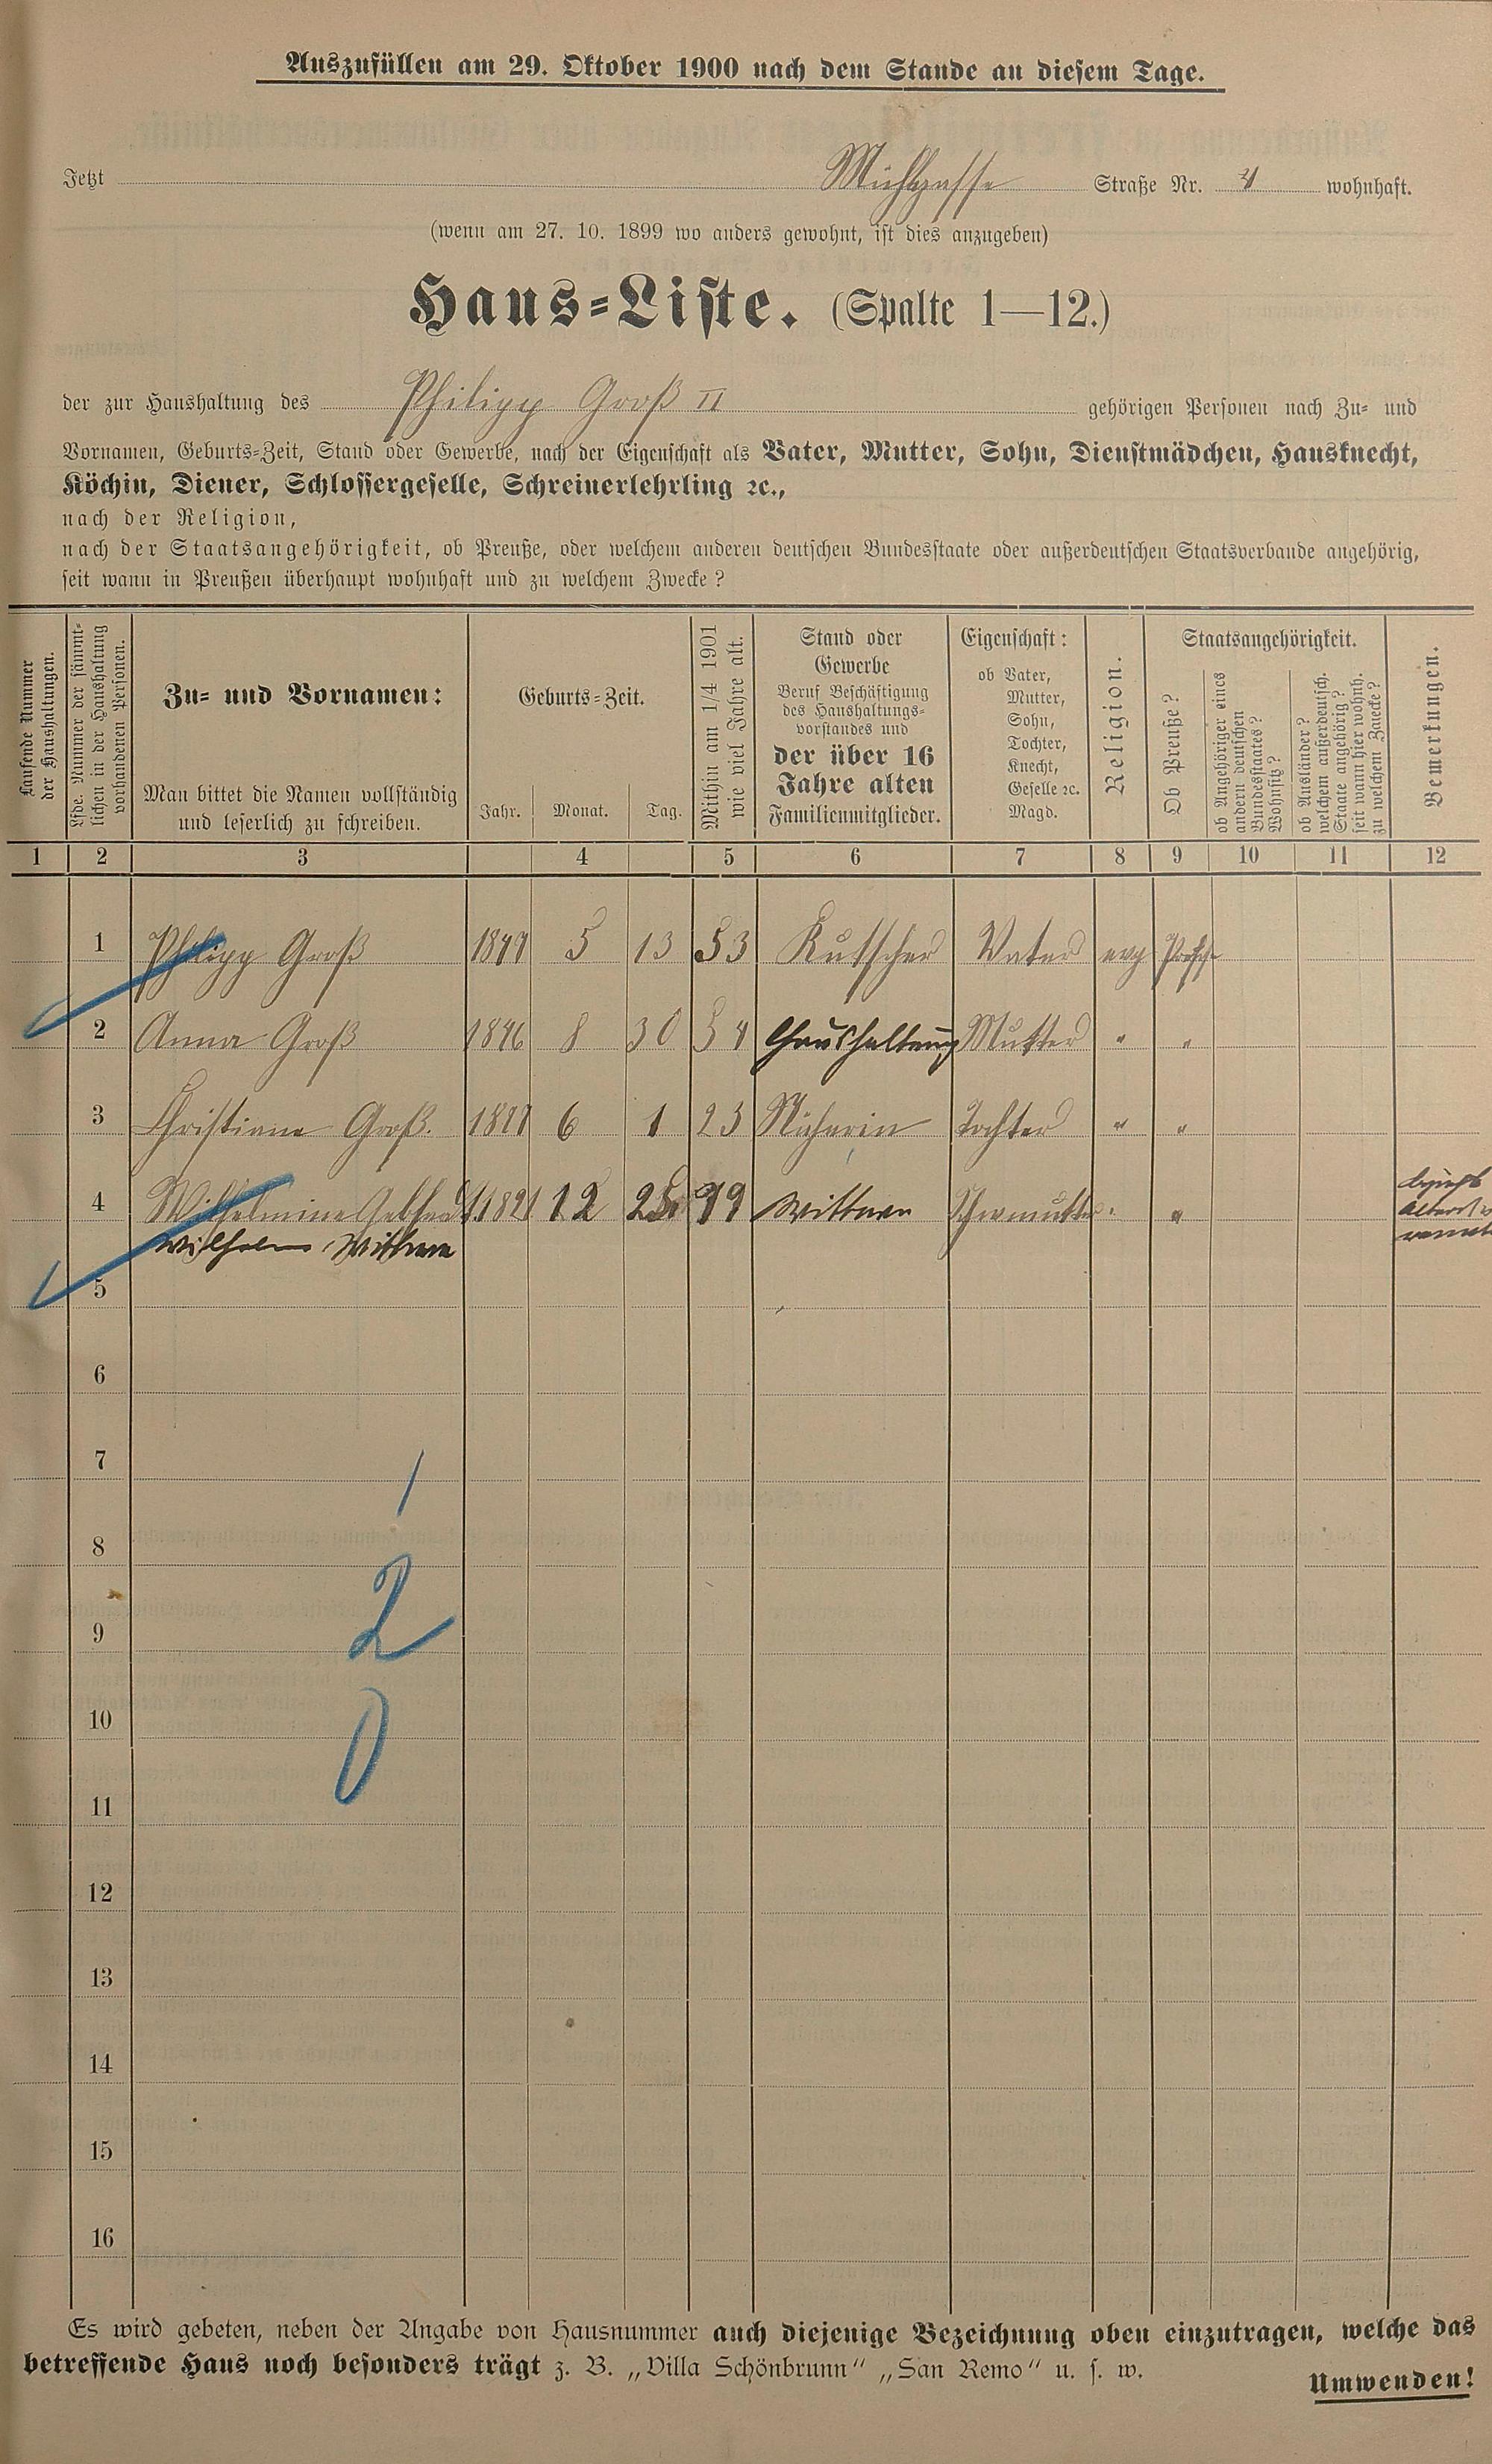 Auszufüllen am 29. Oktober 1900 nach dem Stande an diesem Tage.
Jetzt Mühlgasse Straße Nr. 4 wohnhaft.
(wenn am 27. 10. 1899 wo anders gewohnt, ist dies anzugeben)
Haus-Liste. (Spalte 1—12.)
der zur Haushaltung des Philipp Groß II gehörigen Personen nach Zu- und
Vornamen, Geburts-Zeit, Stand oder Gewerbe, nach der Eigenschaft als Vater, Mutter, Sohn, Dienstmädchen, Hausknecht,
Köchin, Diener, Schlossergeselle, Schreinerlehrling ꝛc.,
nach der Religion,
nach der Staatsangehörigkeit, ob Preuße, oder welchem anderen deutschen Bundesstaate oder außerdeutschen Staatsverbande angehörig,
seit wann in Preußen überhaupt wohnhaft und zu welchem Zwecke?
Laufende Nummer
der Haushaltungen.
Lfde. Nummer der sämmt-
lichen in der Haushaltung
vorhandenen Personen.
Zu- und Vornamen:
Man bittet die Namen vollständig
und leserlich zu schreiben.
Geburts-Zeit.
Jahr. Monat. Tag.
Mithin am 1/4 1901
wie viel Jahre alt.
Stand oder
Gewerbe
Beruf Beschäftigung
des Haushaltungs-
vorstandes und
der über 16
Jahre alten
Familienmitglieder.
Eigenschaft:
ob Vater,
Mutter,
Sohn,
Tochter,
Knecht,
Geselle ꝛc.
Magd.
Religion.
Staatsangehörigkeit.
Ob Preuße?
ob Angehöriger eines
andern deutschen
Bundesstaates?
Wohnsitz?
ob Ausländer?
welchem außerdeutsch.
Staate angehörig?
seit wann hier wohnh.
zu welchem Zwecke?
Bemerkungen.
1 2 3 4 5 6 7 8 9 10 11 12
1 Philipp Groß 1847 5 13 53 Kutscher Vater evg
2 Anna Groß 1846 8 30 54 Haushaltung Mutter " "
3 Christiane Groß. 1877 6 1 23 Näherin Tochter " "
4 Wilhelmine 1821 12 79 Wittwe Schwmutter " "
Wilhelm Wittwe
5
6
7
8
9
10
11
12
13
14
15
16
1
2
0
Es wird gebeten, neben der Angabe von Hausnummer auch diejenige Bezeichnung oben einzutragen, welche das
betreffende Haus noch besonders trägt z. B. „Villa Schönbrunn“ „San Remo“ u. s. w.
Umwenden!